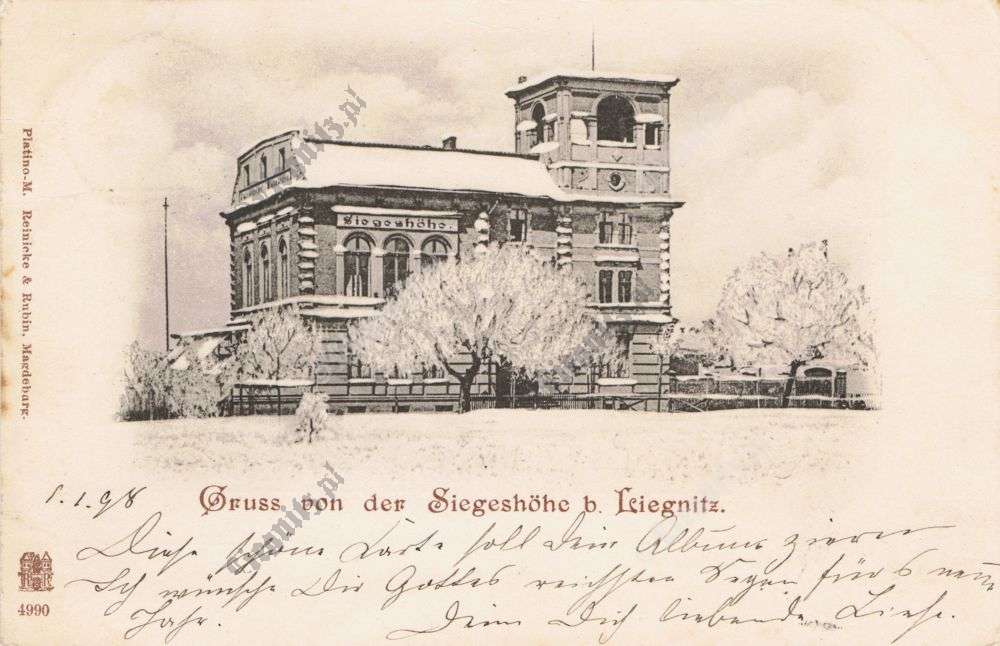 Siegeshöhe.
Platino-M. Reinicke & Rubin, Magdeburg.
1.1.98
Gruss von der Siegeshöhe b. Liegnitz.
Diese schöne Karte soll Dein Album zieren
Ich wünsche Dir Gottes reichsten Segen für's neue
Jahr. Deine Dich liebende Liese.
4990
liegnitz.pl
liegnitz.pl